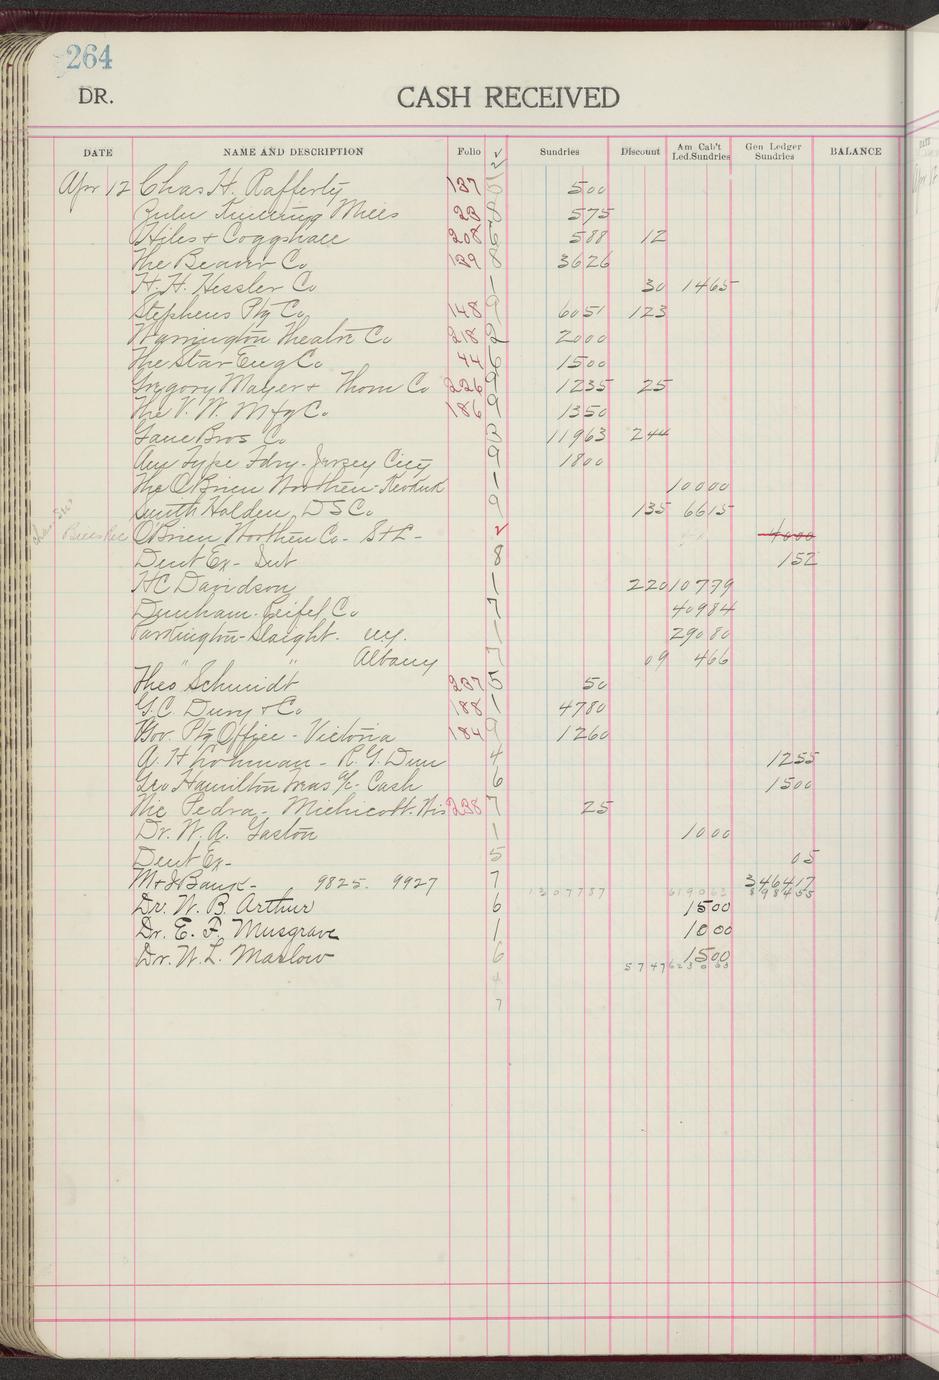 264
DR. CASH RECEIVED
DATE NAME AND DESCRIPTION Folio Sundries Discount Am Cab't Led. Sundries Gen Ledger Sundries BALANCE
Apr 12 Chas H. Rafferty 137 0 500
Mills 23 8 575
Hiles & Coggshall 208 6 588 12
The Beaver Co 139 8 3626
H. H. Hessler Co 1 30 1465
Stephens Ptg Co 148 9 6051 123
Warrington Theatre Co 218 2 2000
The Star Eng Co 44 6 1500
Gregory Mayer & Thom Co 226 9 1235 25
The V. W. Mfg Co 186 9 1350
Gane Bros Co 3 11963 244
Am Type Fdry - Jersey City 9 1800
The O'Brien Northen - Keokuk 1 10000
Smith Holden, D S Co 9 135 6615
O'Brien Northen Co - StL - 4000
Dent Ex - Int 8 152
H C Davidson 1 220 10779
Dunham, Co 7 40984
Pardington - Slaight. 1 29080
" " Albany 7 09 466
Theo Schmidt 237 5 50
G. C. Dury & Co 188 1 4780
Gov. Ptg Office - Victoria 184 9 1260
A. H Lohman - R. G. Dun 4 1255
Geo Hamilton Treas a/c - Cash 6 1500
Nic Pedra - Michicott. Wis 238 7 25
Dr. W. A. Gaston 1 1000
Dent Ex - 5 05
M & I Bank - 9825. 9927 7 346417
1307787 619063 898455
Dr. W. B. Arthur 6 1500
Dr. E. F. Musgrave 1 1000
Dr. W. L. Maslow 6 1500
5747 623063
4
7